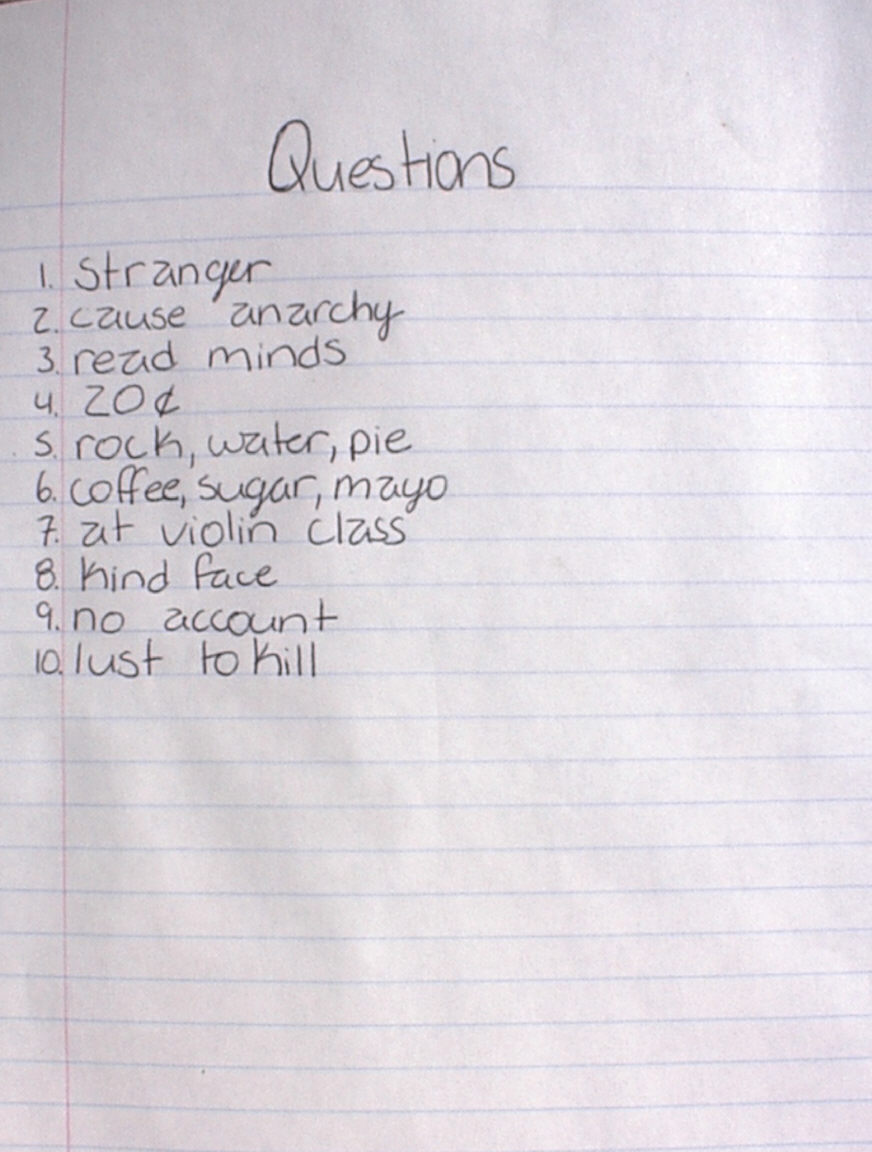 Questions
1. Stranger
2. cause anarchy
3. read minds
4. 20¢
5. rock, water, pie
6. coffee, sugar, mayo
7. at violin class
8. kind face
9. no account
10. lust to kill